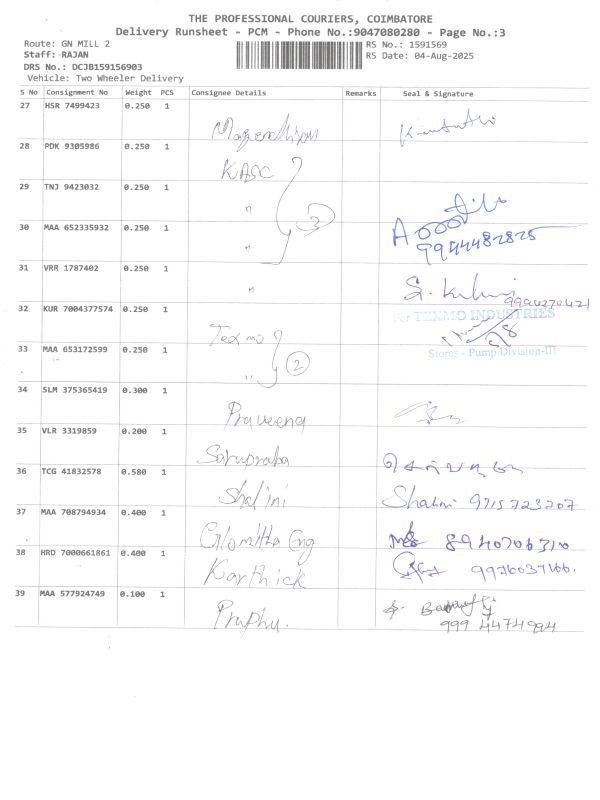 THE PROFESSIONAL COURIERS, COIMBATORE
Delivery Runsheet - PCM - Phone No.:9047080280 - Page No.:3
Route: GN MILL 2 RS No.: 1591569
Staff: RAJAN RS Date: 04-Aug-2025
DRS No.: DCJB159156903
Vehicle: Two Wheeler Delivery
S No Consignment No Weight PCS Consignee Details Remarks Seal & Signature
27 HSR 7499423 0.250 1
28 PDK 9305986 0.250 1 KASC
29 TNJ 9423032 0.250 1 "
3
30 MAA 652335932 0.250 1 " 9944482825
31 VRR 1787402 0.250 1 "
9994270421
32 KUR 7004377574 0.250 1 Texmo For TEXMO INDUSTRIES
33 MAA 653172599 0.250 1 " 2 Stores - Pump Division-III
34 SLM 375365419 0.300 1 Praveena
35 VLR 3319859 0.200 1
36 TCG 41832578 0.580 1 Shalini Shalini 9715723207
37 MAA 708794934 0.400 1 8940706310
38 HRD 7000661861 0.400 1 Karthick 9976037166.
39 MAA 577924749 0.100 1 Praphu.
999 4474994